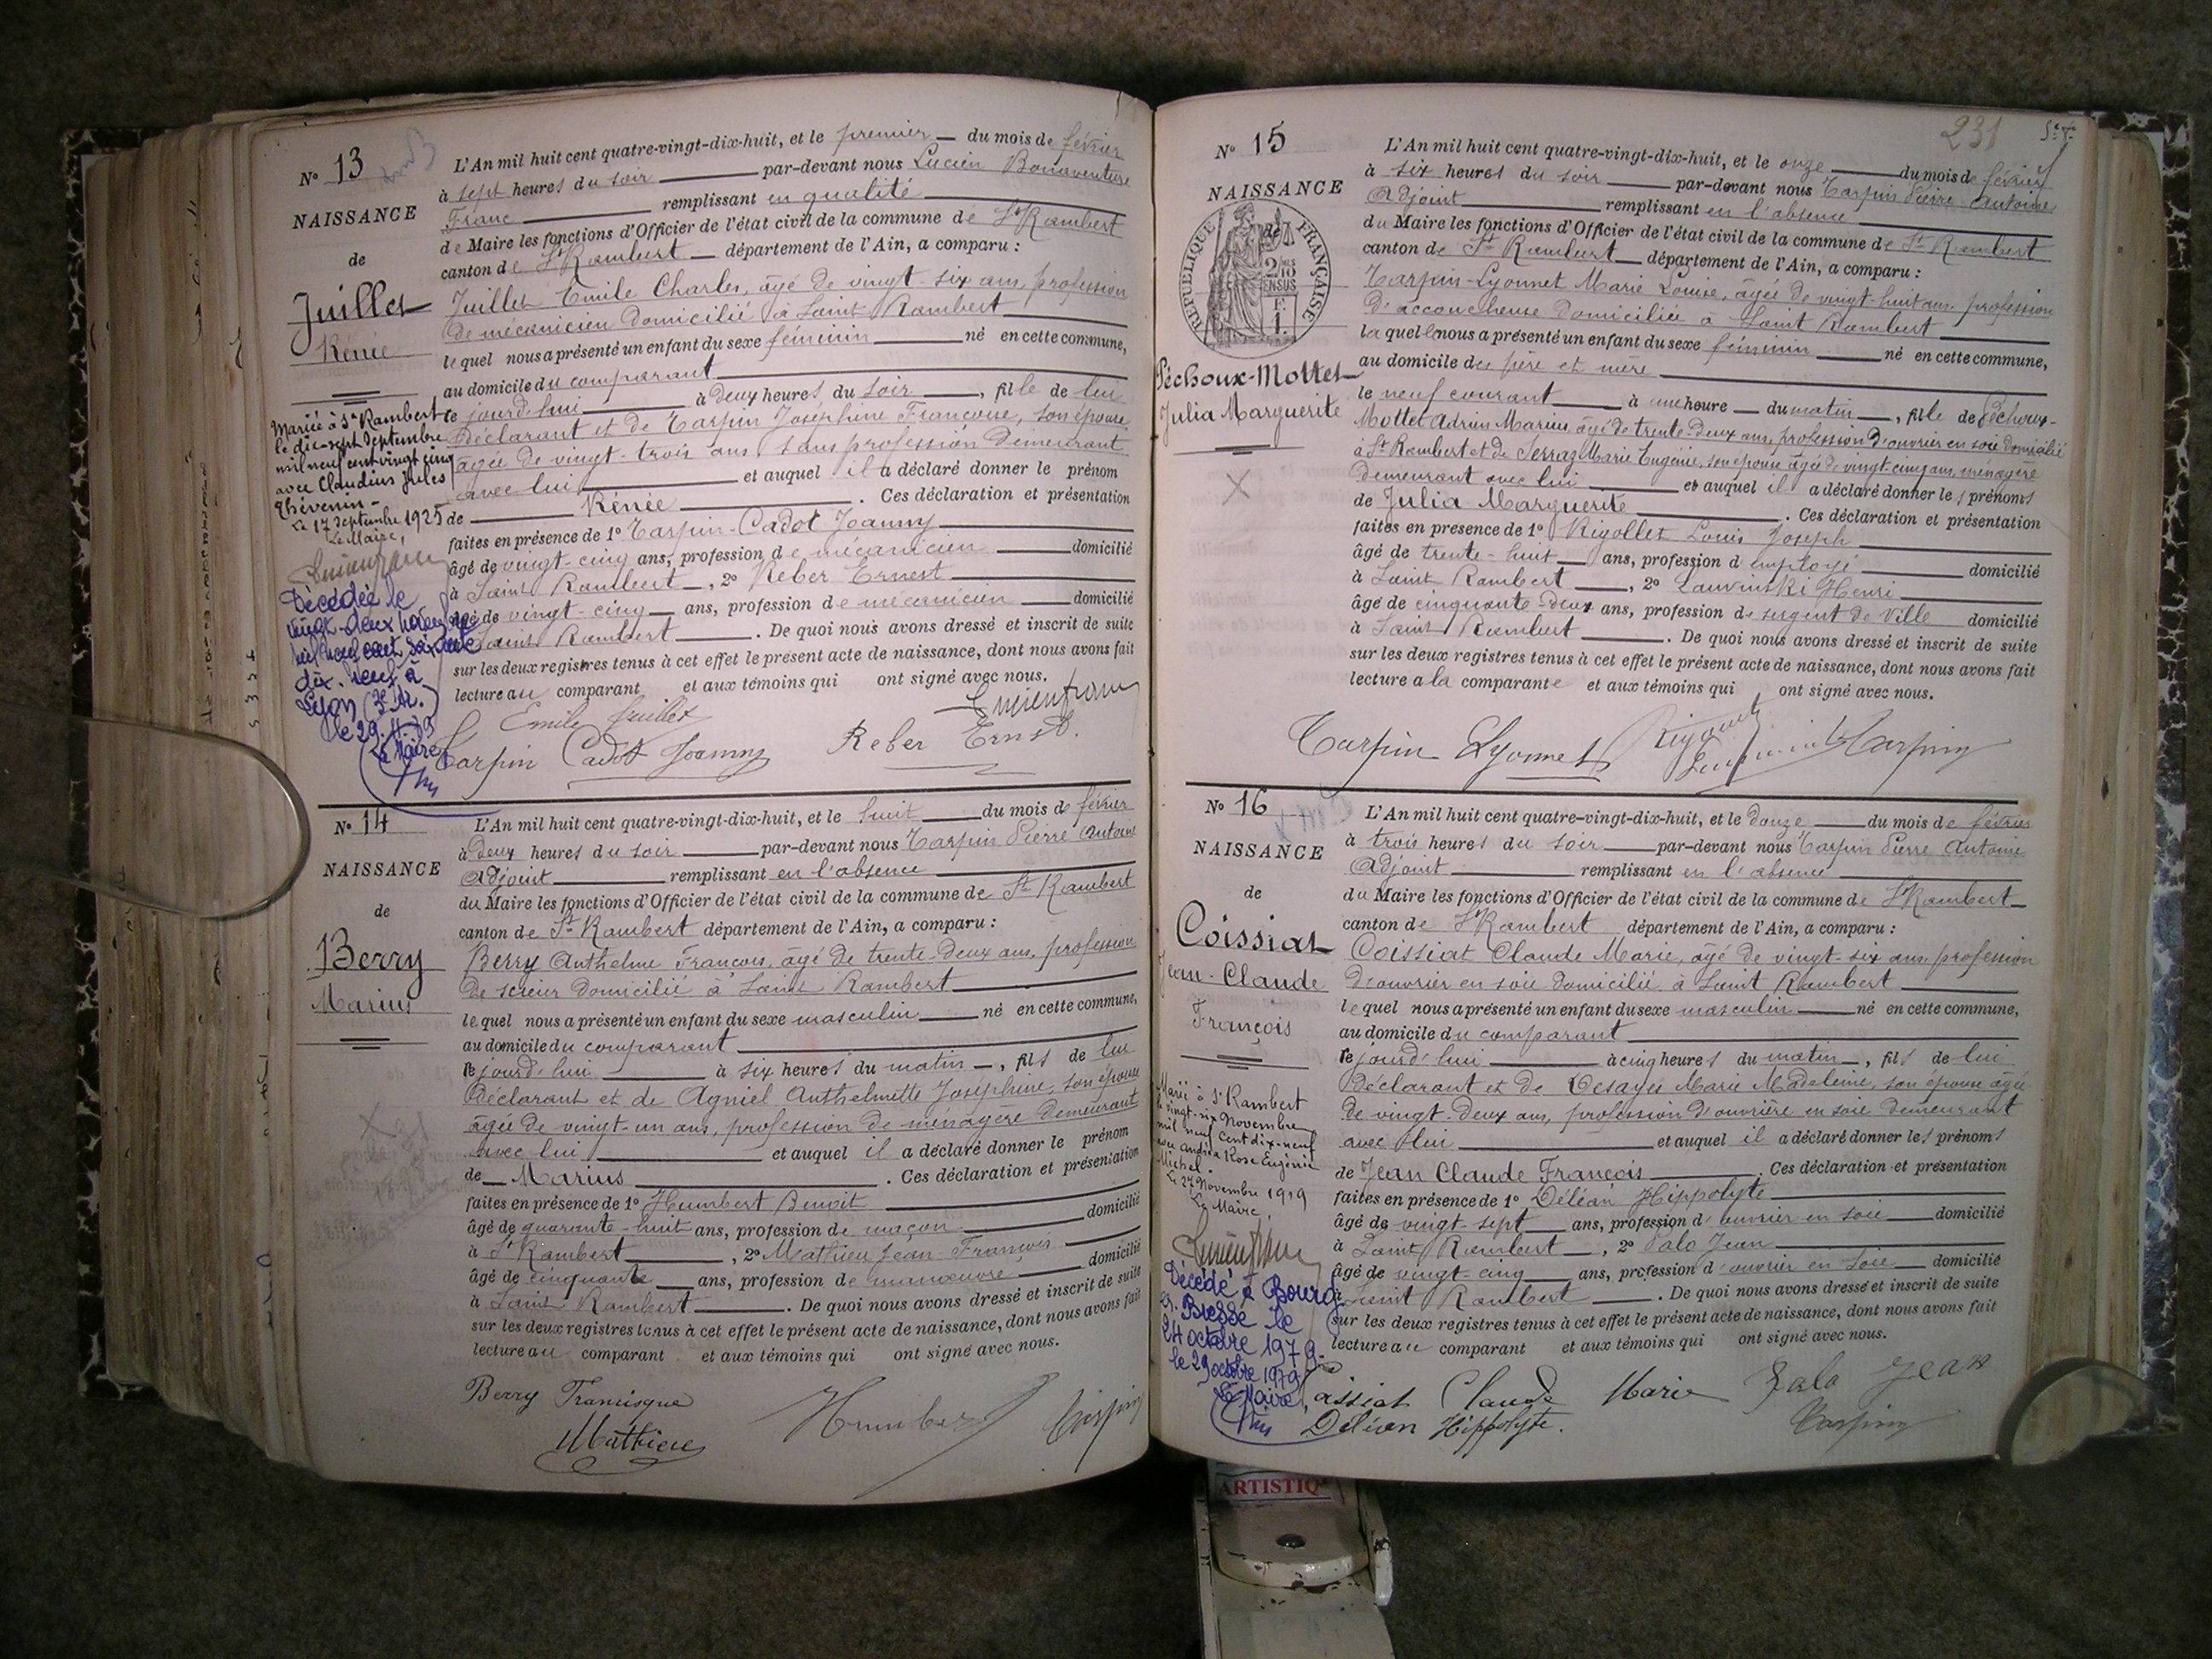 N° 13
NAISSANCE
de
Juillet
Rénée
Mariée à St Rambert
le dix-sept Septembre
mil neuf cent vingt cinq
avec Claudius Jules
Thévenin -
Le 17 Septembre 1925
Le Maire,
Décédée le
vingt-deux
mil neuf cent soixante
dix-neuf à
Lyon (3e Ar.)
le 29.11.79
Le Maire
L'An mil huit cent quatre-vingt-dix-huit, et le premier du mois de février
à sept heures du soir par-devant nous Lucien Bonaventure
Franc remplissant en qualité
de Maire les fonctions d'Officier de l'état civil de la commune de St Rambert
canton de St Rambert département de l'Ain, a comparu :
Juillet Emile Charles, âgé de vingt-six ans, profession
de mécanicien domicilié à Saint Rambert
lequel nous a présenté un enfant du sexe féminin né en cette commune,
au domicile du comparant
ce jourd'hui à deux heures du soir, fille de lui
déclarant et de Tarpin Joséphine Françoise, son épouse,
âgée de vingt-trois ans sans profession demeurant
avec lui et auquel il a déclaré donner le prénom
de Rénée. Ces déclaration et présentation
faites en présence de 1° Tarpin-Cadot Joanny
âgé de vingt-cinq ans, profession de mécanicien domicilié
à Saint Rambert, 2° Reber Ernest
âgé de vingt-cinq ans, profession de mécanicien domicilié
à Saint Rambert. De quoi nous avons dressé et inscrit de suite
sur les deux registres tenus à cet effet le présent acte de naissance, dont nous avons fait
lecture au comparant et aux témoins qui ont signé avec nous.
Emile Juillet
Tarpin Cadot Joanny Reber Ernest.
N° 14
NAISSANCE
de
Berry
Marius
L'An mil huit cent quatre-vingt-dix-huit, et le huit du mois de février
à deux heures du soir par-devant nous Tarpin Pierre Antoine
Adjoint remplissant en l'absence
du Maire les fonctions d'Officier de l'état civil de la commune de St Rambert
canton de St Rambert département de l'Ain, a comparu :
Berry Anthelme François, âgé de trente-deux ans, profession
de scieur domicilié à Saint Rambert
lequel nous a présenté un enfant du sexe masculin né en cette commune,
au domicile du comparant
ce jourd'hui à six heures du matin, fils de lui
déclarant et de Agniel Anthelmette Joséphine, son épouse
âgée de vingt-un ans, profession de ménagère demeurant
avec lui et auquel il a déclaré donner le prénom
de Marius. Ces déclaration et présentation
faites en présence de 1° Humbert Benoit
âgé de quarante-huit ans, profession de maçon domicilié
à St Rambert, 2° Mathieu Jean François
âgé de cinquante ans, profession de manœuvre domicilié
à Saint Rambert. De quoi nous avons dressé et inscrit de suite
sur les deux registres tenus à cet effet le présent acte de naissance, dont nous avons fait
lecture au comparant et aux témoins qui ont signé avec nous.
Berry Francisque
Mathieu Humbert Tarpin
231
N° 15
NAISSANCE
de
RÉPUBLIQUE FRANÇAISE
Péchoux-Mottet
Julia Marguerite
L'An mil huit cent quatre-vingt-dix-huit, et le onze du mois de février
à six heures du soir par-devant nous Tarpin Pierre Antoine
Adjoint remplissant en l'absence
du Maire les fonctions d'Officier de l'état civil de la commune de St Rambert
canton de St Rambert département de l'Ain, a comparu :
Tarpin-Lyonnet Marie Louise, âgée de vingt-huit ans, profession
d'accoucheuse domiciliée à Saint Rambert
laquelle nous a présenté un enfant du sexe féminin né en cette commune,
au domicile des père et mère
le neuf courant à une heure du matin, fille de Péchoux-
Mottet Adrien Marius, âgé de trente-deux ans, profession d'ouvrier en soie domicilié
à St Rambert et de Serraz Marie Eugénie, son épouse âgée de vingt-cinq ans, ménagère
demeurant avec lui et auquel il a déclaré donner les prénoms
de Julia Marguerite. Ces déclaration et présentation
faites en présence de 1° Rigollet Louis Joseph
âgé de trente-huit ans, profession d'employé domicilié
à Saint Rambert, 2° Lauvinski Henri
âgé de cinquante-deux ans, profession de sergent de Ville domicilié
à Saint Rambert. De quoi nous avons dressé et inscrit de suite
sur les deux registres tenus à cet effet le présent acte de naissance, dont nous avons fait
lecture à la comparante et aux témoins qui ont signé avec nous.
Tarpin Lyonnet Tarpin
N° 16
NAISSANCE
de
Coissiat
Jean-Claude
François
Marié à St Rambert
le vingt-six Novembre
mil neuf cent dix-neuf
avec Andréa Rose Eugénie
Michel.
Le 27 Novembre 1919
Le Maire,
Décédé à Bourg
en Bresse le
24 octobre 1979
le 29 octobre 1979
Le Maire,
L'An mil huit cent quatre-vingt-dix-huit, et le douze du mois de février
à trois heures du soir par-devant nous Tarpin Pierre Antoine
Adjoint remplissant en l'absence
du Maire les fonctions d'Officier de l'état civil de la commune de St Rambert
canton de St Rambert département de l'Ain, a comparu :
Coissiat Claude Marie, âgé de vingt-six ans, profession
d'ouvrier en soie domicilié à Saint Rambert
lequel nous a présenté un enfant du sexe masculin né en cette commune,
au domicile du comparant
ce jourd'hui à cinq heures du matin, fils de lui
déclarant et de Desayes Marie Madeleine, son épouse âgée
de vingt-deux ans, profession d'ouvrière en soie demeurant
avec lui et auquel il a déclaré donner les prénoms
de Jean Claude François. Ces déclaration et présentation
faites en présence de 1° Déléan Hippolyte
âgé de vingt-sept ans, profession d'ouvrier en soie domicilié
à Saint Rambert, 2° Palo Jean
âgé de vingt-cinq ans, profession d'ouvrier en soie domicilié
à Saint Rambert. De quoi nous avons dressé et inscrit de suite
sur les deux registres tenus à cet effet le présent acte de naissance, dont nous avons fait
lecture au comparant et aux témoins qui ont signé avec nous.
Coissiat Claude Marie Palo Jean
Déléan Hippolyte. Tarpin
ARTISTIQ